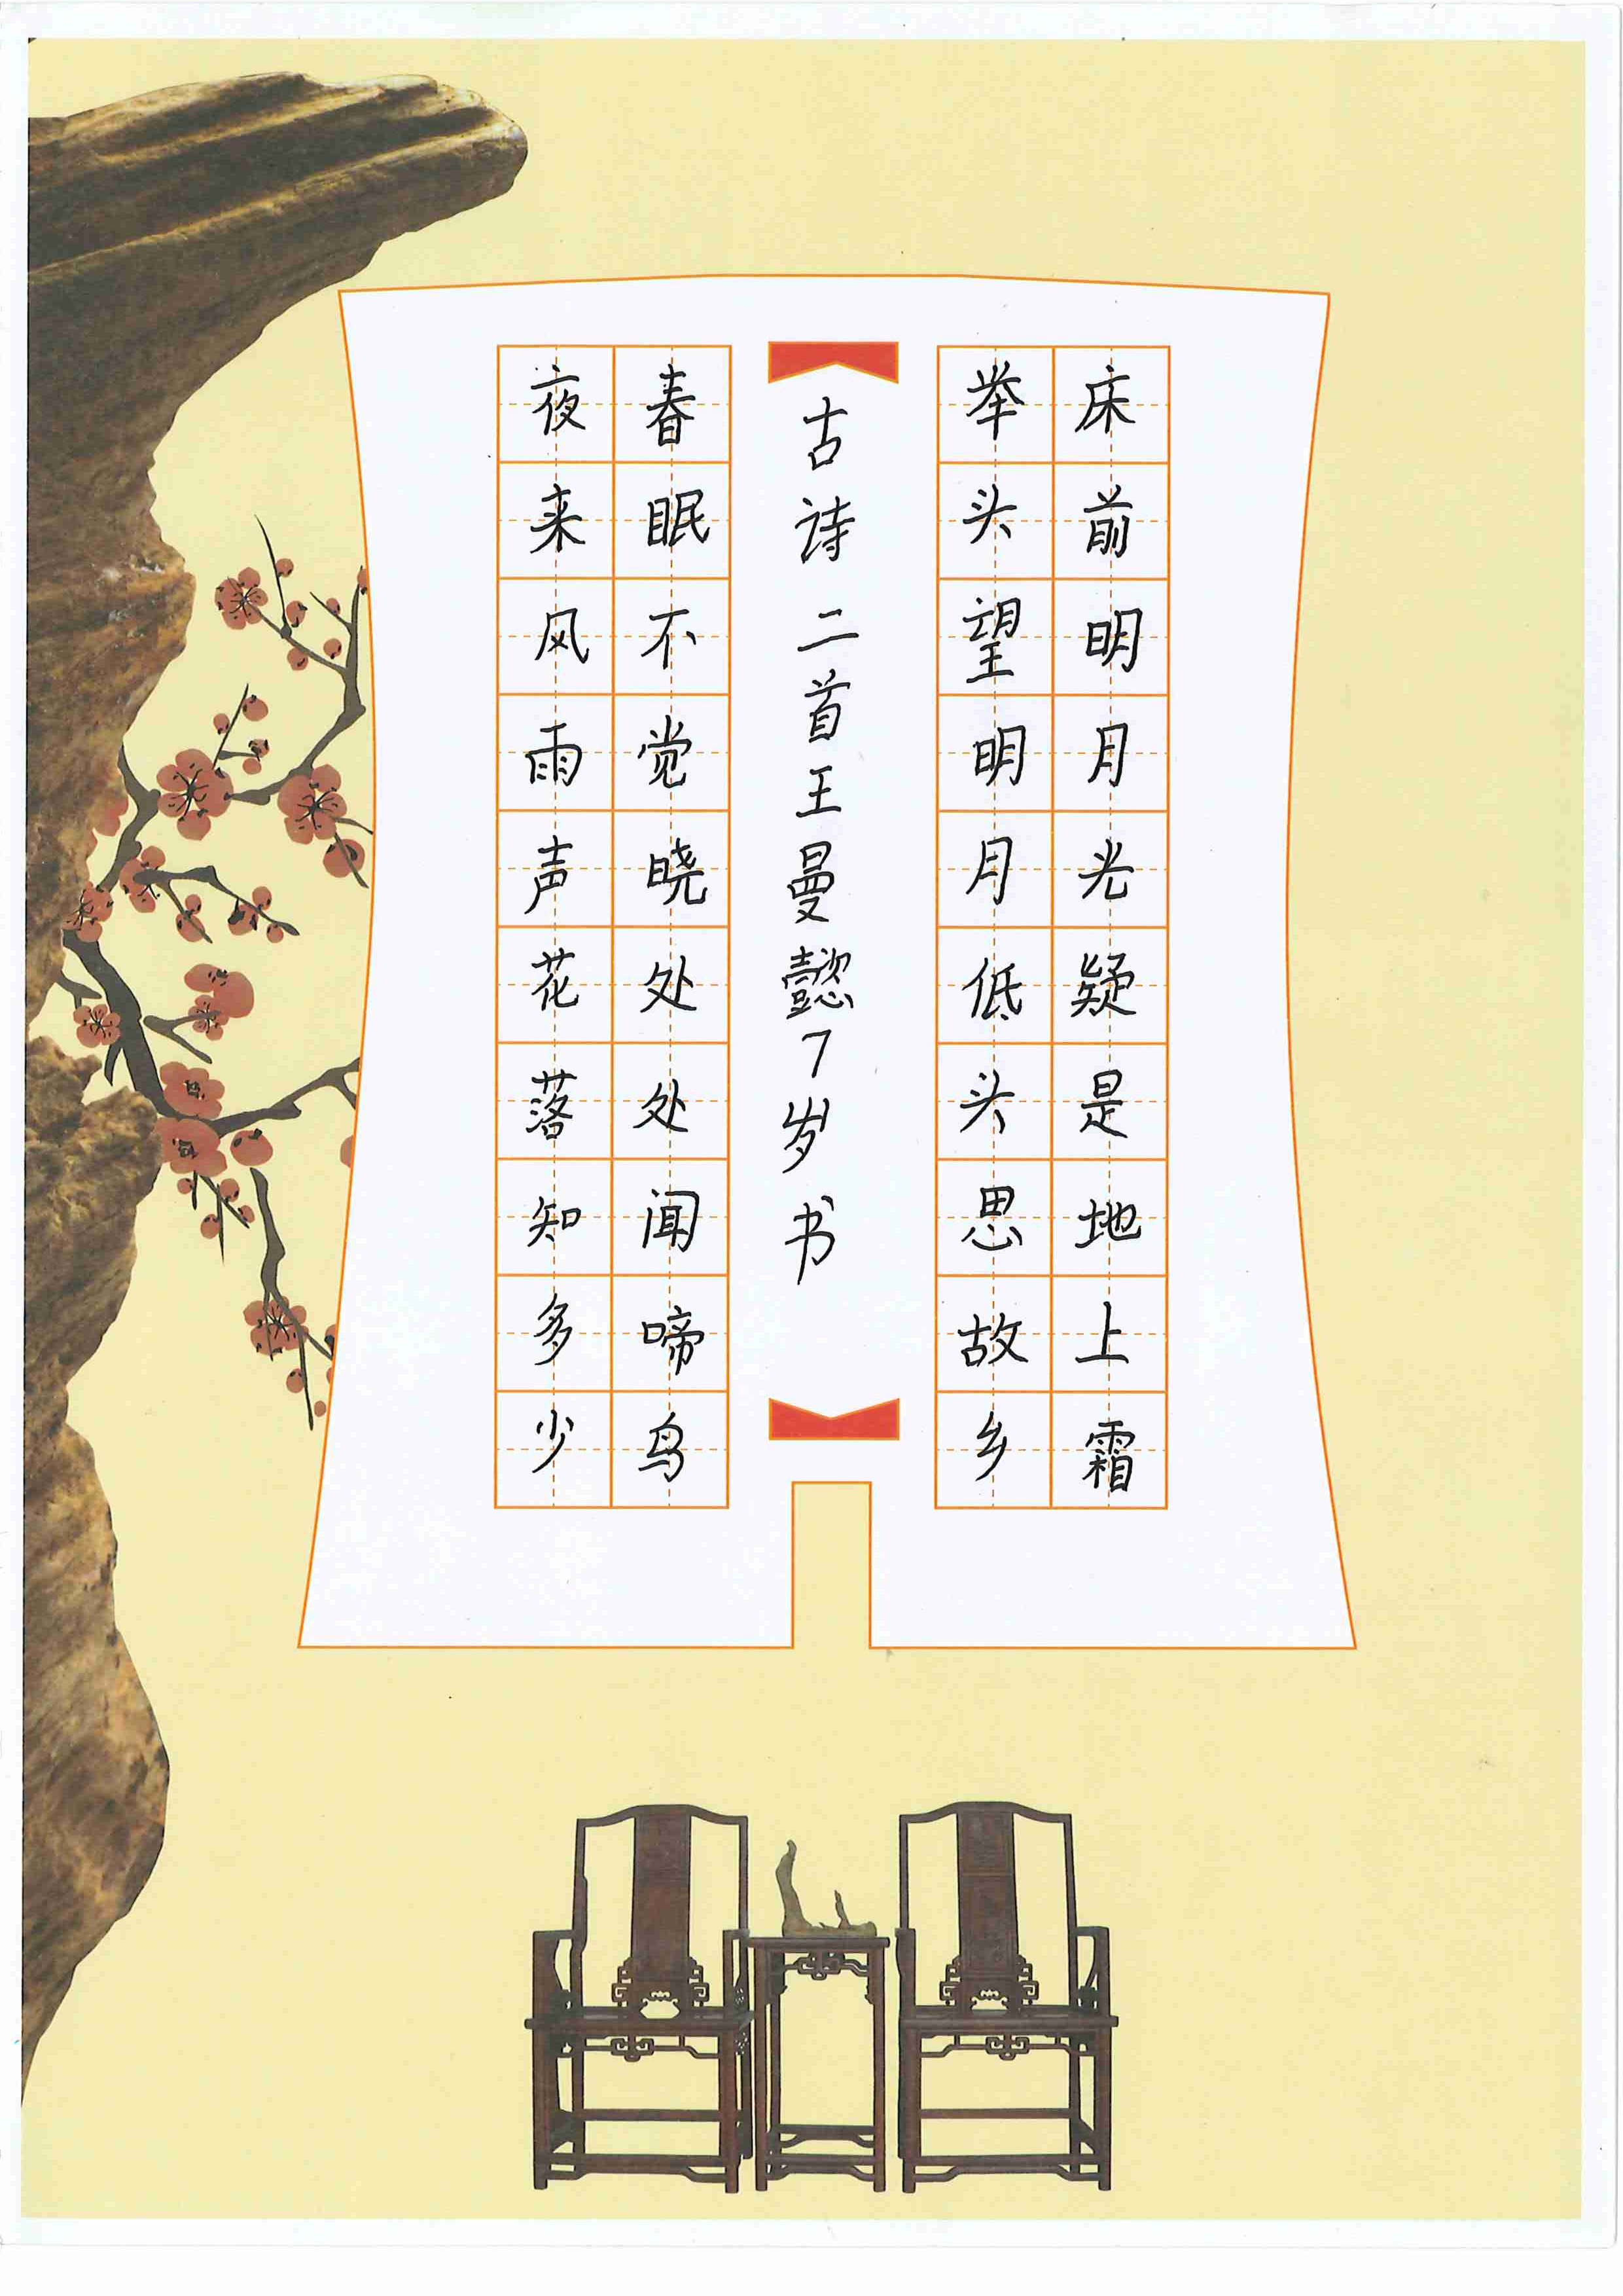 床前明月光疑是地上霜
举头望明月低头思故乡
古诗二首王曼懿7岁书
春眠不觉晓处处闻啼鸟
夜来风雨声花落知多少